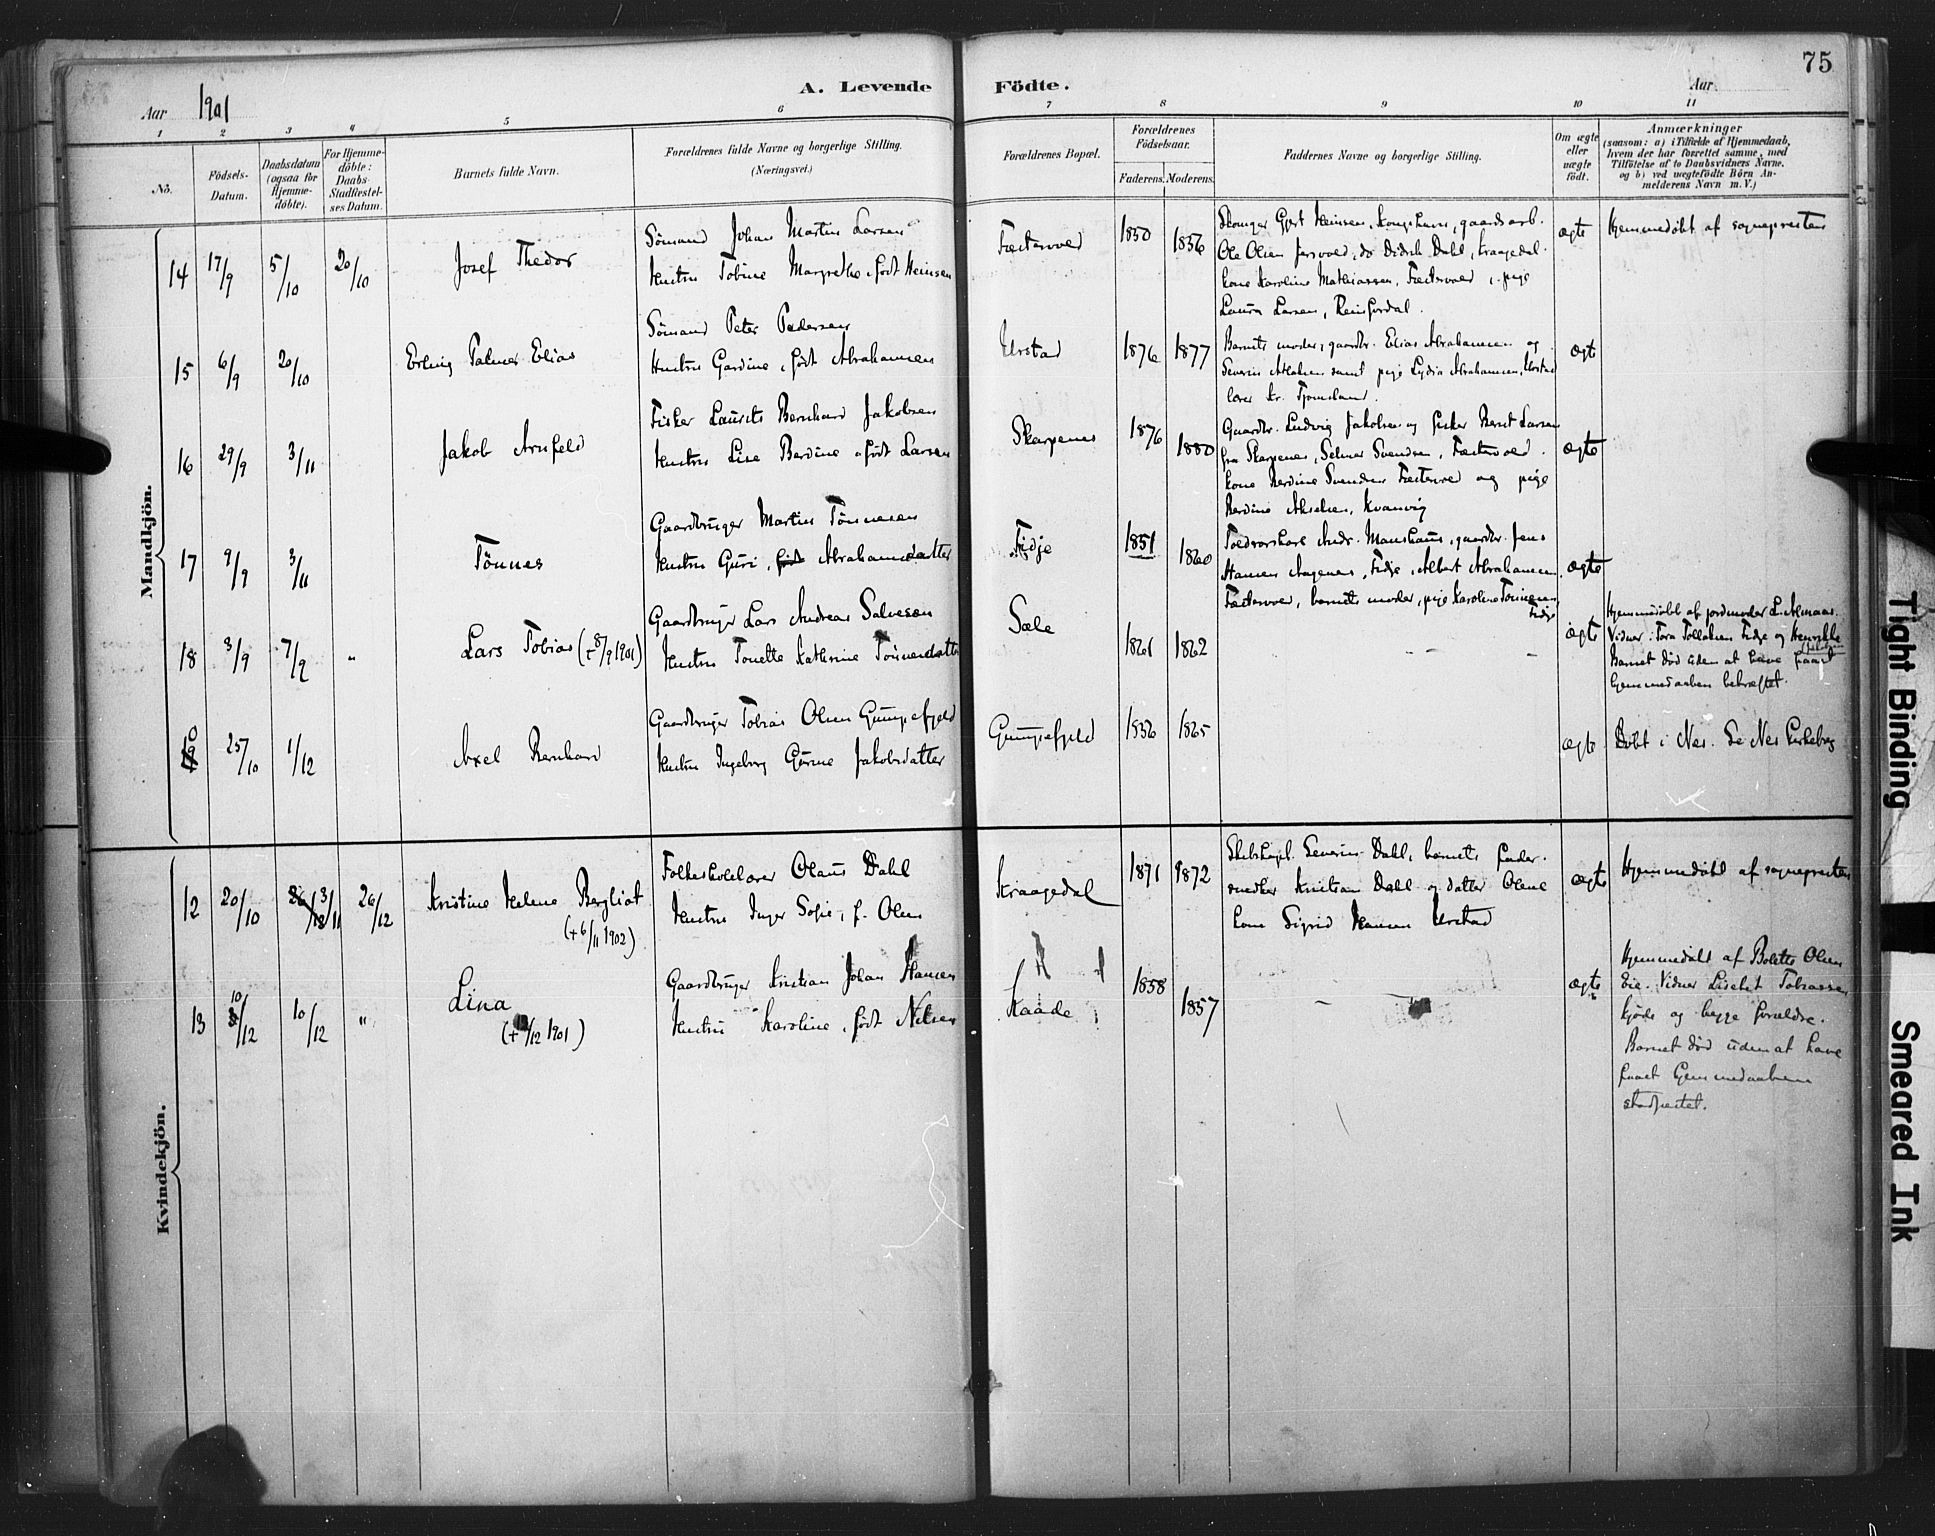 75
A. Levende Födte.
Aar 1901
Aar
1 2 3 4 5 6 7 8 9 10 11
No.
Födsels-Datum.
Daabsdatum (ogsaa for Hjemme-döbte).
For Hjemme-döbte: Daabs-Stadfæstel-ses Datum.
Barnets fulde Navn.
Forældrenes fulde Navne og borgerlige Stilling. (Næringsvei.)
Forældrenes Bopæl.
Forældrenes Födselsaar.
Faderens. Moderens.
Faddernes Navne og borgerlige Stilling.
Om ægte eller uægte födt.
Anmærkninger
(saasom: a) i Tilfælde af Hjemmedaab, hvem der har forrettet samme, med Tilföielse af to Daabsvidners Navne. og b) ved uægtefödte Börn Anmelderens Navn m. V.)
Mandkjön.
14 17/9 5/10 20/10 Josef Thedor
Sömand Johan Martin Larsen
Hustru Tobine Margrethe, födt Heinsen
1850 1856
Ole Olsen
Dahl, Kraagedal
kone Karoline Mathiassen, pige
Laura Larsen,
ægte
Hjemmedöbt af sognepresten
15 6/9 20/10 Erling Palmer Elias
Sömand Peter Pedersen
Hustru Gardine, födt Abrahamsen
Urstad 1876 1877
Barnets moder, gaardbr. Elias Abrahamsen og
Severin samt pige Lydia Abrahamsen, Urstad
lærer Kr.
ægte
16 29/9 3/11 Jakob Arnfeld
Fisker Laurits Bernhard Jakobsen
Hustru Lise Berdine, födt Larsen
Skarpenes 1876 1880
Gaardbr. Ludvig Jakobsen og fisker Bernt Larsen
fra Skarpenes, Selmer Svendsen,
kone Berdine Svendsen og pige
Berdine Kvanvig
ægte
17 9/9 3/11 Tönnes
Gaardbruger Martin Tönnesen
Hustru Guri, födt Abrahamsdatter
Fidje 1851 1860
gaardbr. Jens
Hansen Aagenes, Fidje, Albert Abrahamsen
barnets moder, pige Karoline Tönnesen
Fidje
ægte
18 3/9 7/9 " Lars Tobias (+ 8/9 1901)
Gaardbruger Lars Andreas Salvesen
Hustru Tonette Kathrine Tönnesdatter
Sæle 1861 1862
ægte
Hjemmedöbt af jordmoder L.
Vidner: Tora Tollaksen Fidje og Henrikke
Barnet död uden at have faaet
hjemmedaaben bekræftet.
25/10 1/12 Axel Bernhard
Gaardbruger Tobias Olsen Gumpefjeld
Hustru Ingeborg Gurine Jakobsdatter
Gumpefjeld 1836 1865
ægte
Döbt i Nes. Se Nes Kirkebog
Kvindekjön.
12 20/10 3/11 26/12 Kristine Helene Bergliot
(+ 6/11 1902)
Folkeskolelærer Olaus Dahl
Hustru Inger Sofie, f. Olsen
Kraagedal 1871 1872
Severin Dahl, barnets fader.
snedker Kristian Dahl og datter Olene
kone Sigrid Hansen Urstad
ægte
Hjemmedöbt af sognepresten
13 10/12 10/12 " Lina
(+ /12 1901)
Gaardbruger Kristian Johan Hansen
Hustru Karoline, födt Nilsen
Kaade 1858 1857
ægte
Hjemmedöbt af Bolette Olsen
Eie. Vidner Lisebet Tobiassen
og begge forældre.
Barnet död uden at have
faaet hjemmedaaben
stadfæstet.
Tight Binding
Smeared Ink